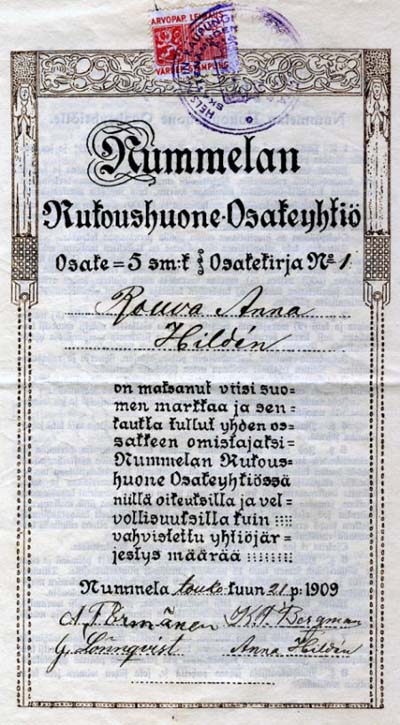 ARVOPAP. LEIMAUS
VARDEP. STÄMPLING
Nummelan
Rukoushuone-Osakeyhtiö
Osake = 5 sm:k Osakekirja № 1.
Rouva Anna
Hildén
on maksanut viisi suo=
men markkaa ja sen=
kautta tullut yhden os=
sakkeen omistajaksi=
Nummelan Rukous=
huone Osakeyhtiössä
niillä oikeuksilla ja vel=
vollisuuksilla kuin ::::
vahvistettu yhtiöjär=
jestys määrää ::::::::
Nummela touko kuun 21 p: 1909
K. A. Bergman
J. Lönnqvist Anna Hildén